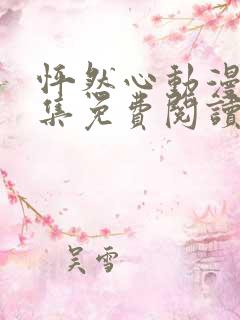 怦然心動漫
集免費閱讀
吴雪